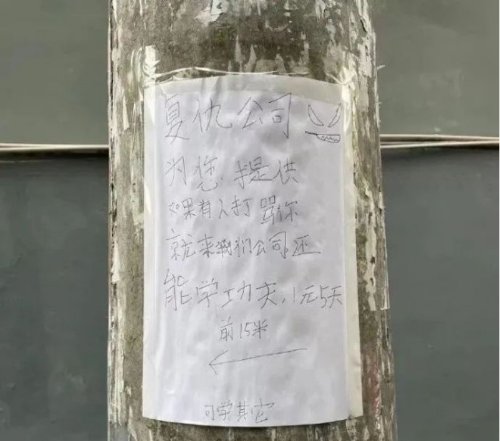 复仇公司
为您提供
如果有人打你
就来我们公司还
能学功夫,1元5天
前15米
可学其它